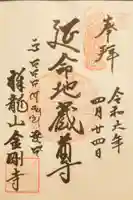 奉拝
令和六年
四月廿四日
延命地蔵尊
祥龍山金剛寺